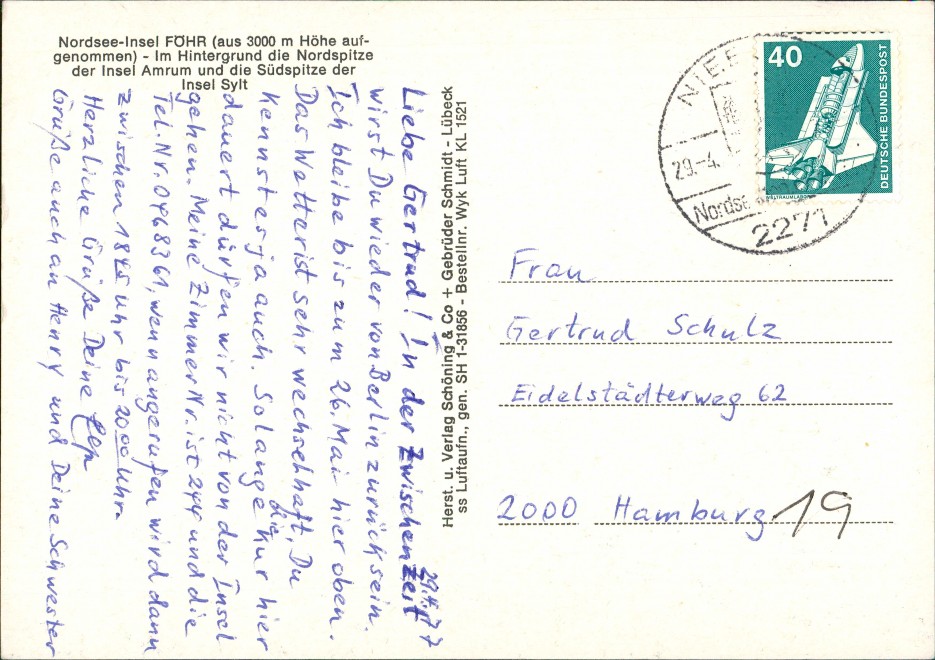 Nordsee-Insel FÖHR (aus 3000 m Höhe auf-
genommen) - Im Hintergrund die Nordspitze
der Insel Amrum und die Südspitze der
Insel Sylt
29.4.77
Liebe Gertrud! In der Zwischenzeit
wirst Du wieder von Berlin zurück sein.
Ich bleibe bis zum 26. Mai hier oben.
Das Wetter ist sehr wechselhaft, Du
kennst es ja auch. Solange die Kur hier
dauert dürfen wir nicht von der Insel
gehen. Meine Zimmer Nr. ist 244 und die
Tel. Nr. 0468361, wenn angerufen wird dann
zwischen 1845 Uhr bis 2000 Uhr.
Herzliche Grüße Deine
Grüße auch an Henry und Deine Schwester
Herst. u. Verlag Schöning & Co + Gebrüder Schmidt - Lübeck
ss Luftaufn., gen. SH 1-31856 - Bestellnr. Wyk Luft KL 1521
40
DEUTSCHE BUNDESPOST
WELTRAUMLABOR
29.-4.
2271
Frau
Gertrud Schulz
Eidelstädterweg 62
2000 Hamburg 19